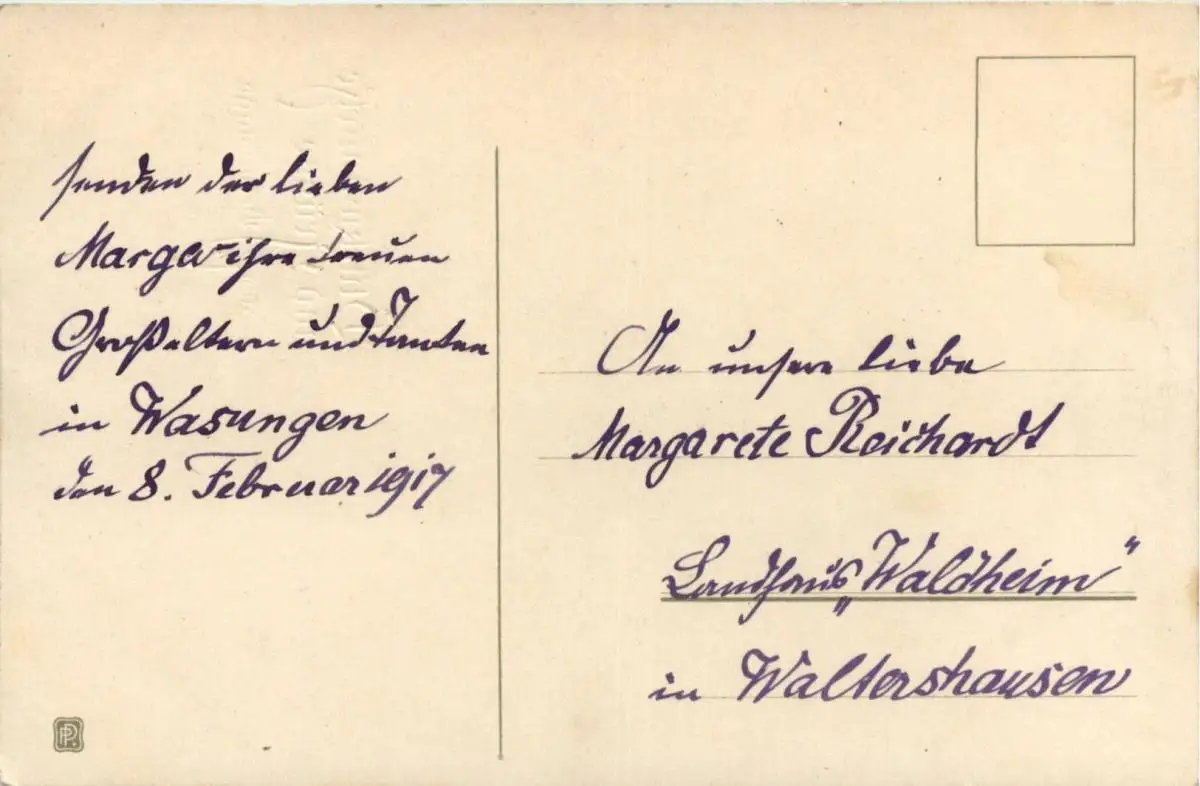 senden der lieben
Marga ihre treuen
Großeltern und Tanten
in Wasungen
den 8. Februar 1917
An unsere liebe
Margarete Reichardt
Landhaus „Waldheim“
in Waltershausen
PP